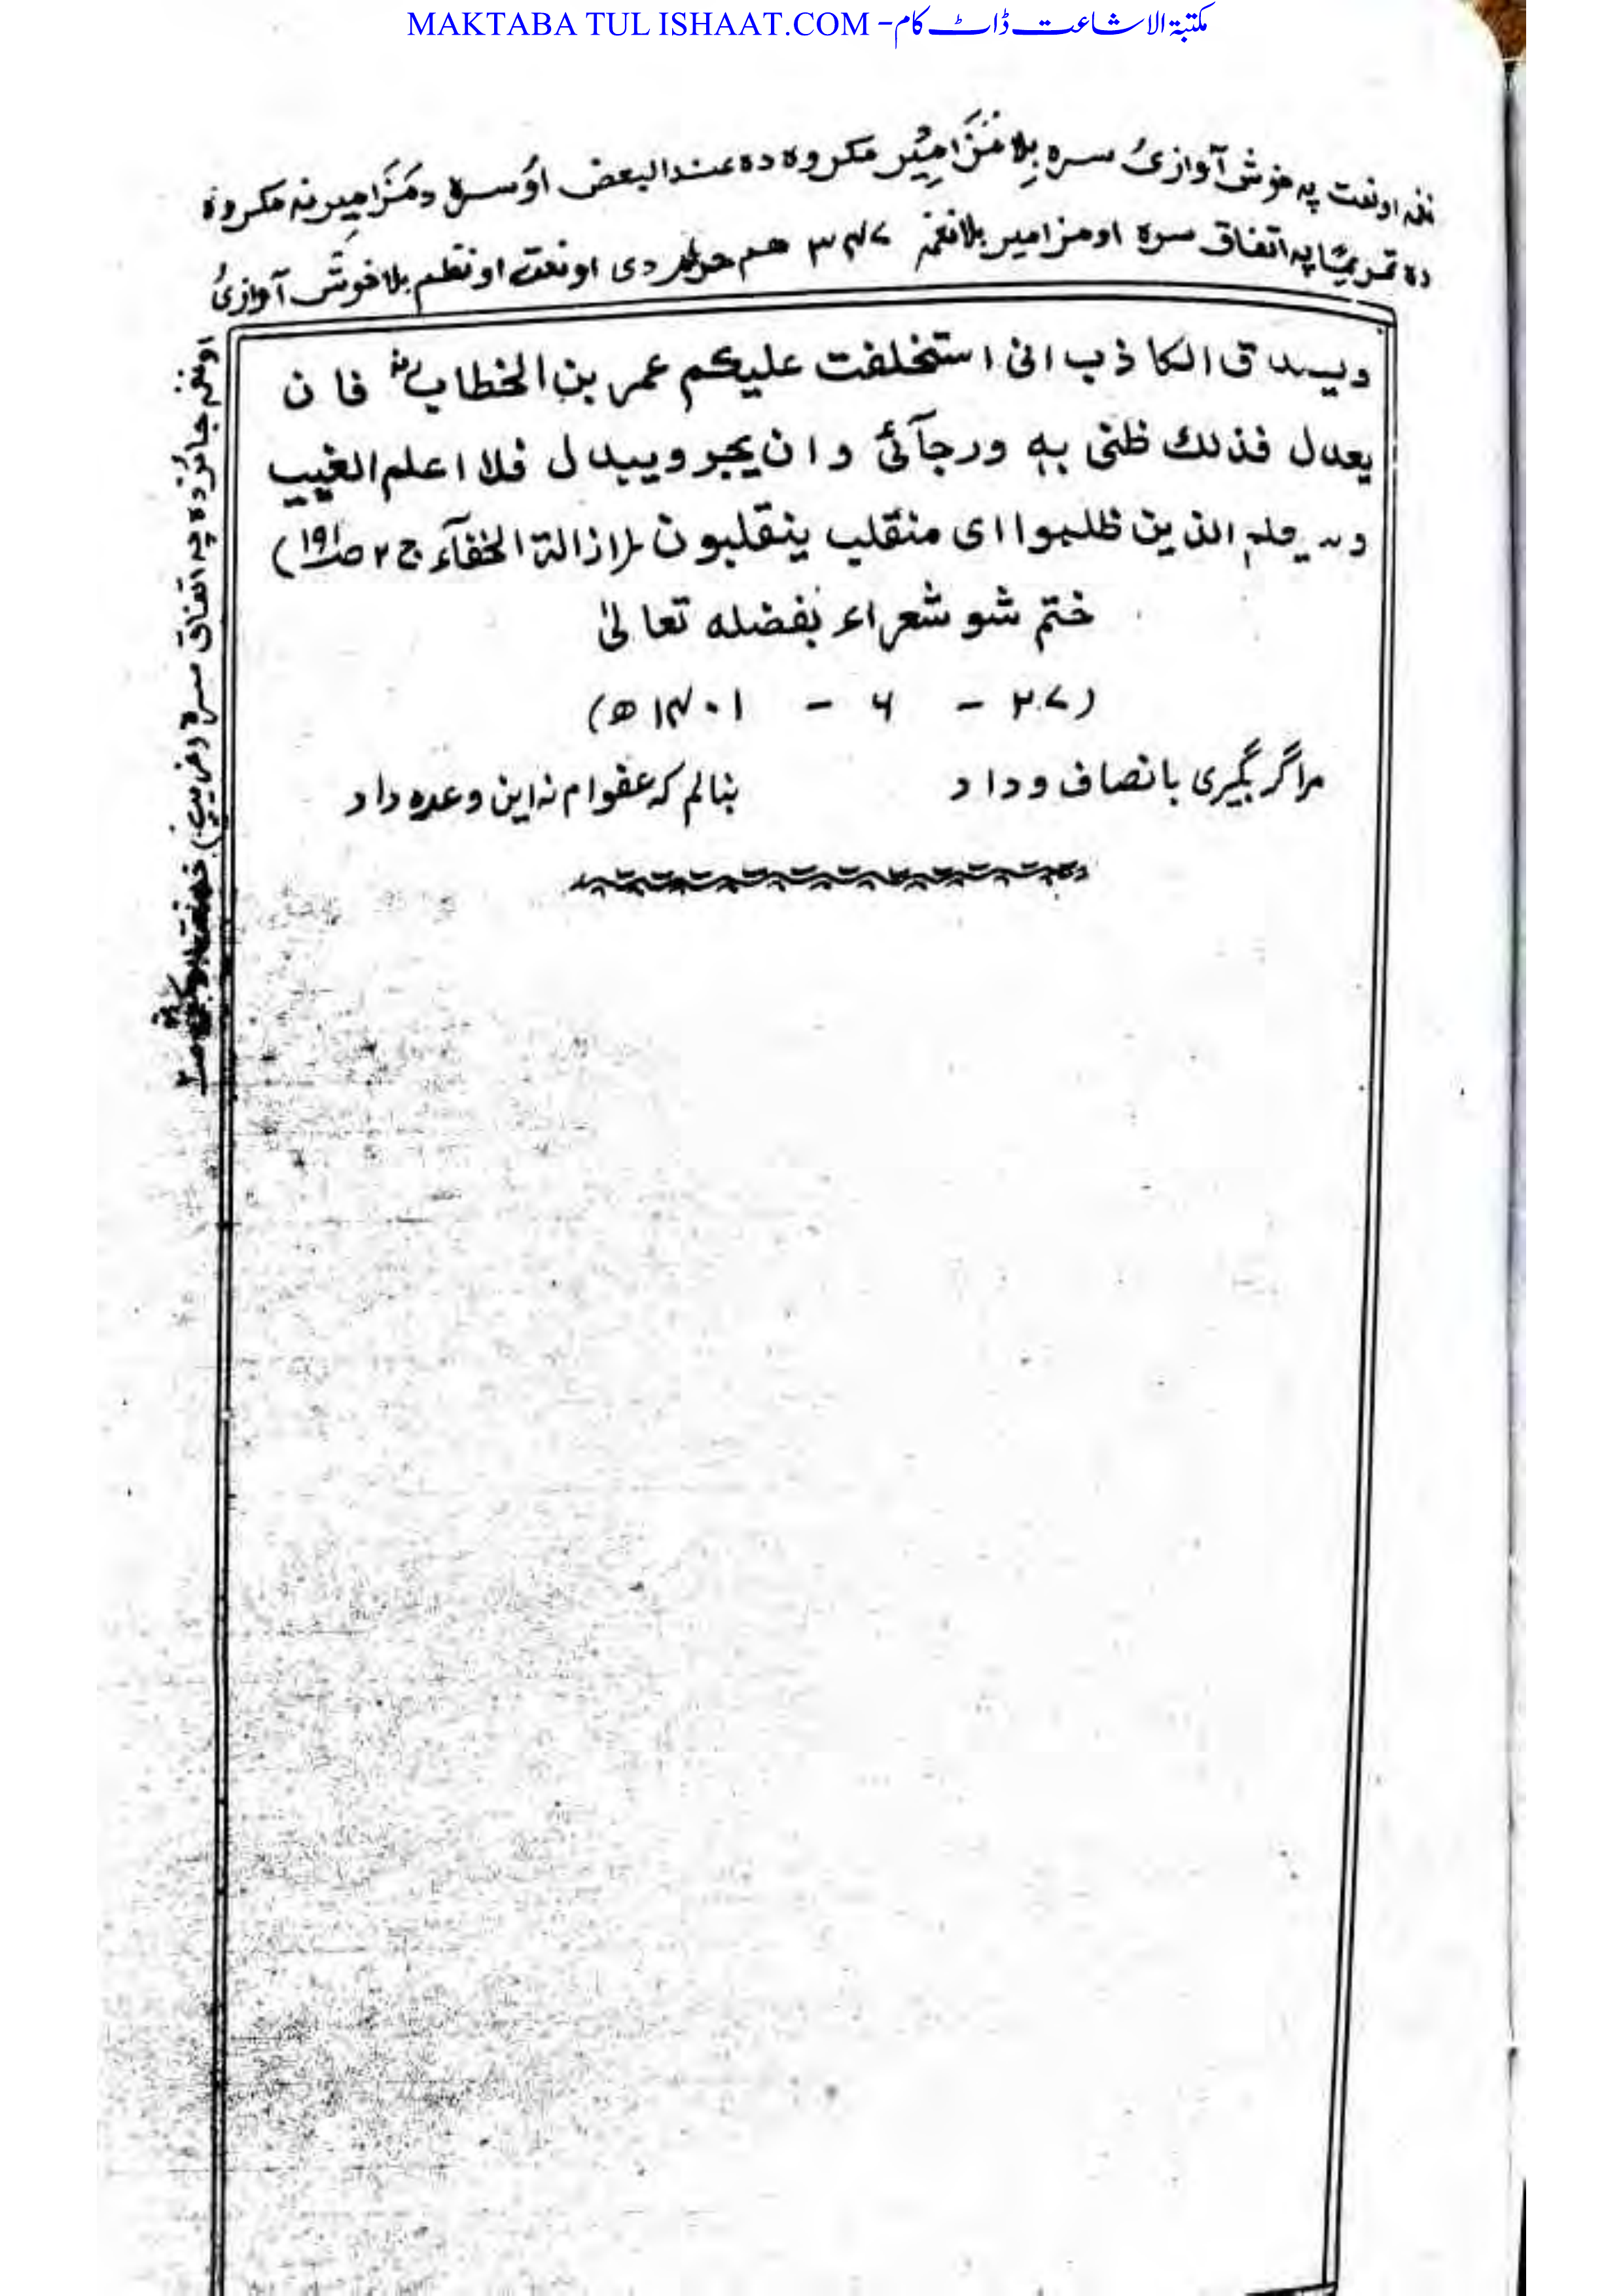 MAKTABA TUL ISHAAT.COM - مکتبۃ الاشاعت ڈاٹ کام
نغمہ او نعت په خوش آوازئ سره بِلا مَزَامِیْر مکروه ده عند البعض اؤ سره د مَزَامِیر نه مکروه
ده تحریمًا په اتفاق سره او مزامیر بلا نغمه ۳۴۷ هم حرام دی او نعت او نظم بلا خوش آوازئ
او نغمه جائز ده په اتفاق سره
ویصدق الکاذب انی استخلفت علیکم عمر بن الخطابؓ فان
یعدل فذلك ظنی به ورجآئی وان یجر ویبدل فلا اعلم الغیب
وسیعلم الذین ظلموا ای منقلب ینقلبون (ازالة الخفآء ج ۲ صـ۱۹)
ختم شو شعراء بفضله تعالیٰ
(۲۷ - ۶ - ۱۴۰۱ ھ)
مرا گر بگیری بانصاف و داد
بنالم که عفوام نه این وعده داد